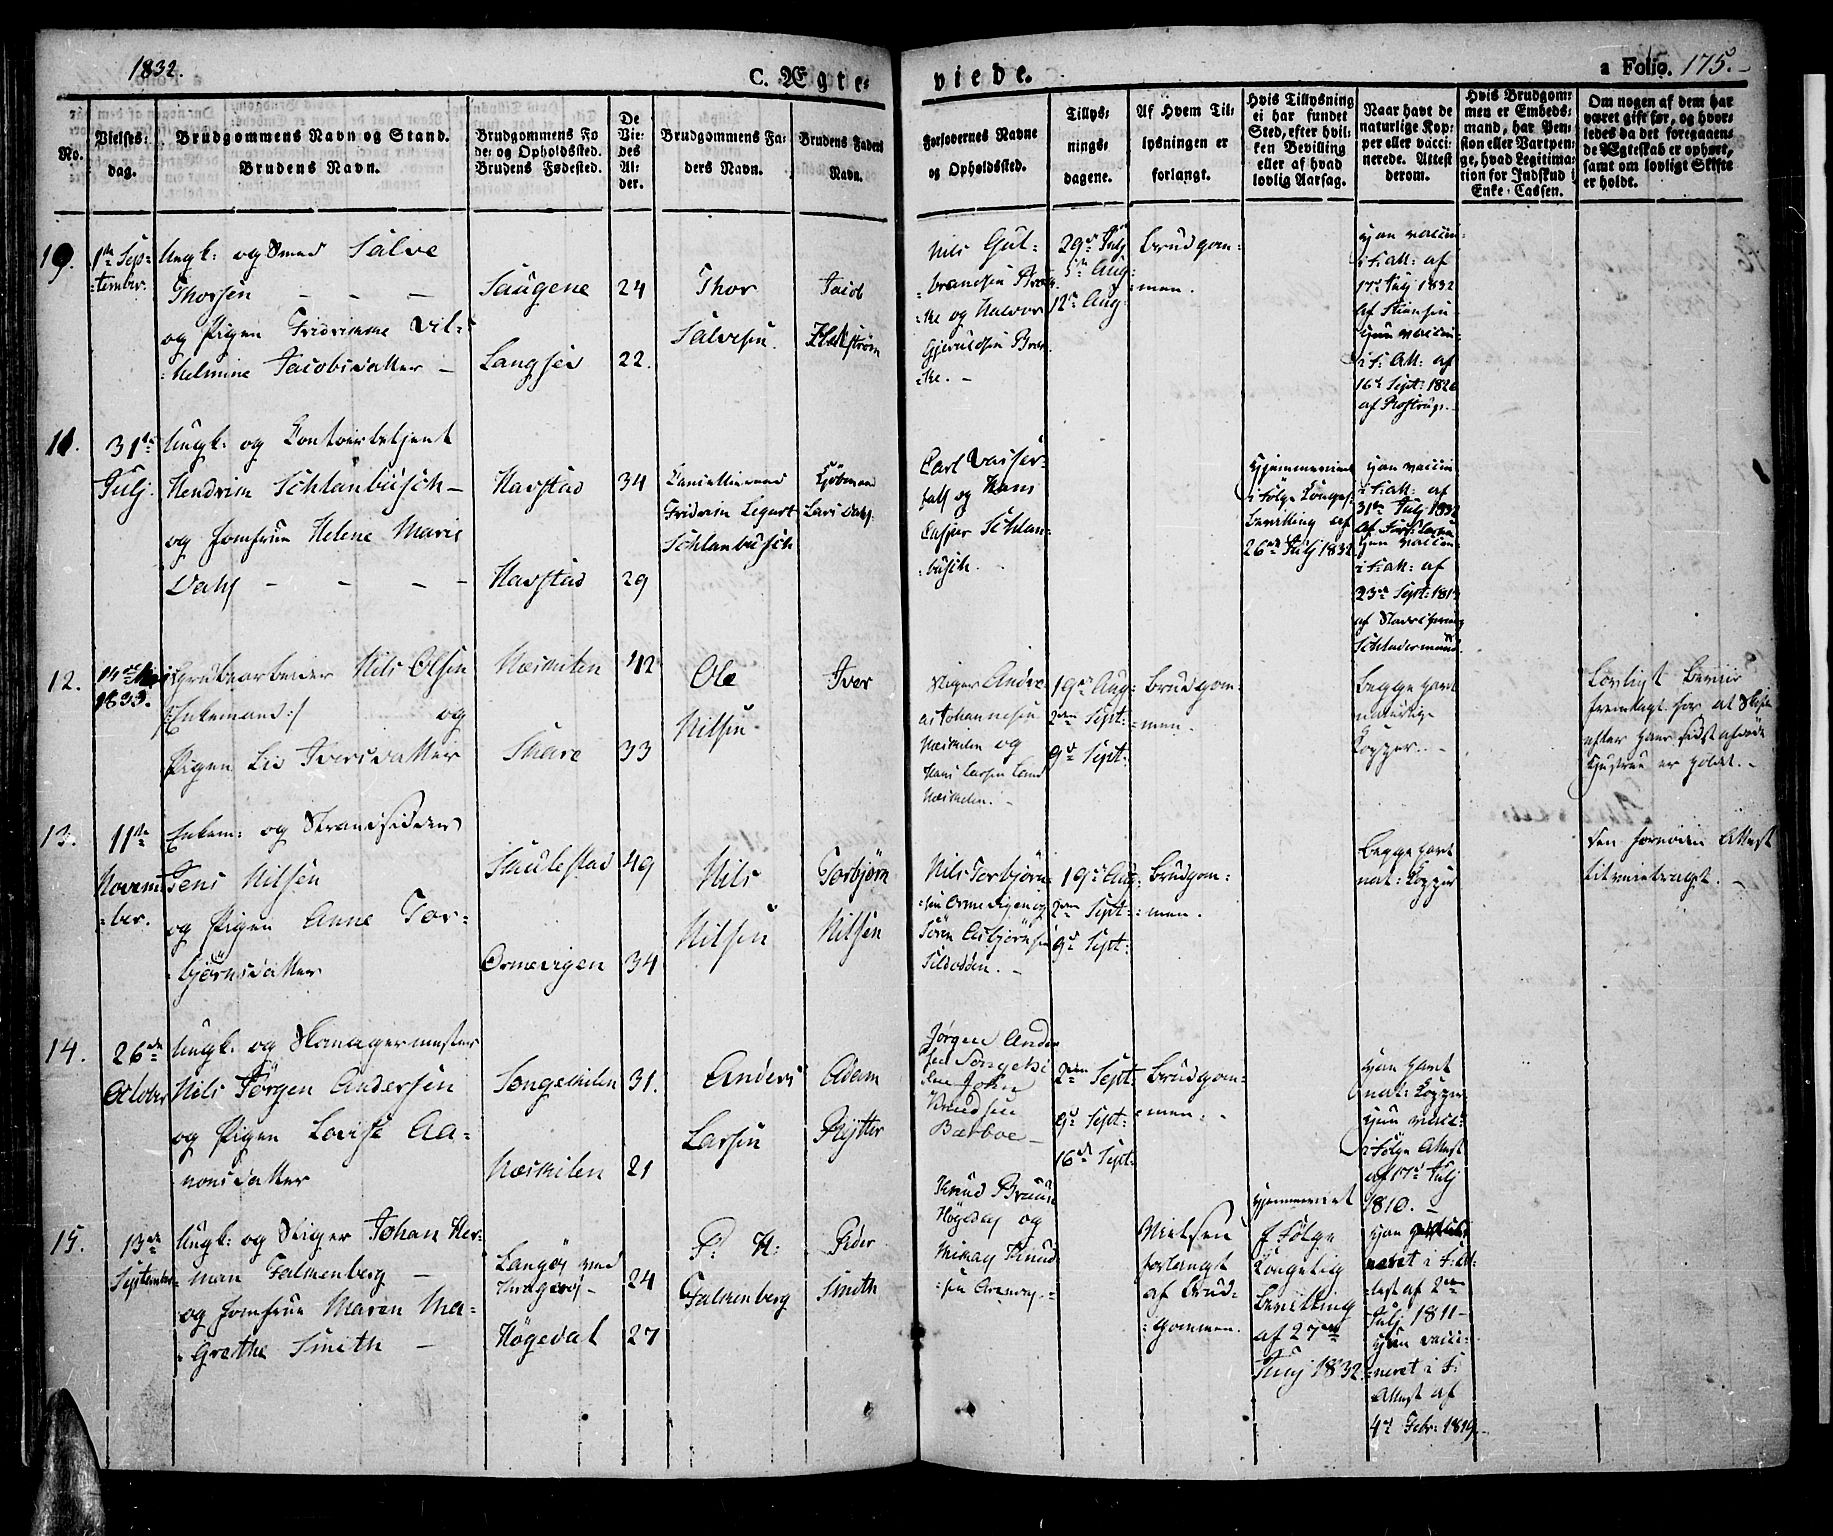 1832.
C. Ægte-
viede.
a Folio. 175.
No.
Vielses-
dag.
Brudgommens Navn og Stand.
Brudens Navn.
Brudgommens Fø
de- og Opholdssted.
Brudens Fødested.
De
Vie-
des
Al-
der.
Brudgommens Fa-
ders Navn.
Brudens Faders
Navn.
Forlovernes Navne
og Opholdssted.
Tillys-
nings-
dagene.
Af Hvem Til-
lysningen er
forlangt.
Hvis Tillysning
ei har fundet
Sted, efter hvil-
ken Bevilling
eller af hvad
lovlig Aarsag.
Naar havt de
naturlige Kop-
per eller vacci-
nerede. Attest
derom.
Hvis Brudgom-
men er Embeds-
mand, har Pen-
sion eller Vartpen-
ge, hvad Legitima-
tion for Indskud i
Enke-Cassen.
Om nogen af dem har
været gift før, og hvor-
ledes da det foregaaen-
de Ægteskab er ophørt,
samt om lovligt Skifte
er holdt.
10.
1ste Sep-
tember.
Ungk: og Smed Salve
Thorsen
og Pigen Fridrikke Vil-
helmine Jacobsdatter
Saugene
Langsev
24
22.
Thor
Salvesen
Jacob
Nils Gul-
brandsen
-ke og Halvor
29de Julj
5te Aug:
12te Aug:
Brudgom-
men.
Han vaccin:
i F: Att: af
17de Julj 1832
af Stensen
Hun vaccin:
i F: Att: af
16de Sept: 1826
11.
31te
Julj.
Ungk: og Contoirbetjent
Hendrik Schlanbusch
og Jomfrue Helene Marie
Dahl
Havstad
Havstad
34
29
Fridrik
Schlanbusch
Kjøbmand
Lars Dahl
Carl Vasser-
fall og Hans
Casper Schlan-
busch.
Hjemmeviet
i Følge Konges:
Bevilling af
26de Julj 1832
Han vaccin:
i F: Att: af
31te Julj 1832
Hun vaccin:
i F: Att: af
23de Sept:
12.
1833.
Grubearbeider Nils Olsen
/: Enkemand :/ og
Pigen Liv Iversdatter
Næskilen
Skare
42
33
Ole
Nilsen
Iver
Stiger Andre-
as Johannesen
Næskilen og
Hans Larsen
Næskilen.
19de Aug:
2den Sept:
9de Sept:
Brudgom-
men.
Begge havt
naturlige
Kopper.
Lovligt Beviis
fremlagt for at Skifte
efter hans sidst afdøde
Hustrue er holdt.
13.
11te
Novem-
ber.
Enkem: og Strandsidder
Jens Nilsen
og Pigen Anne Tor-
bjørnsdatter
Saulestad
Ormevigen
49
34
Nils
Nilsen
Torbjørn
Nilsen
Nils Torbjørn-
sen Ormevigen og
Søren Asbjørnsen
Sildodden.
19de Aug:
2den Sept:
9de Sept:
Brudgom-
men.
Begge havt
nat: Kopper
Den fornødne Attest
tilveiebragt.
14.
26de
October
Ungk: og Skomagermester
Nils Jörgen Andersen
og Pigen Lovise Aa-
nonsdatter
Songekilen
Næskilen
31.
21
Anders
Larsen
Adam
Rytter
Jørgen Ander
sen Songeki
len John
Knudsen
Barboe
2den Sept.
9de Sept:
16de Sept:
Brudgom-
men.
Han havt
nat: Kopper
Hun
i Følge Attest
af 17de Julj
1810.
15.
13de
September
Ungk: og Stiger Johan Her-
man Falkenberg
og Jomfrue Maren Ma-
Grethe Smith
Langøy ved
Kragerøe
Høgedal
24
27
P: H:
Falkenberg
Peder
Smith
Knud
Høgedal og
Knud-
sen Arendal
Vielsen
forlangt
af Brud-
gommen.
Hjemmeviet
i Følge
Kongelig
Bevilling
af 27de
Julj 1832
Han
neret i F: At-
test af 2den
Julj 1811
Hun vacci-
neret i F:
Attest af
4de Febr: 1819